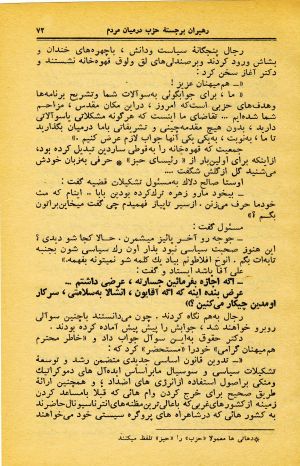 رهبران برجستهٔ حزب درمیان مردم ۷۳
رجال پنجگانهٔ سیاست ودانش ، باچهره‌های خندان و
بشاش ورود کردند وبرصندلی‌های لق ولوق قهوه‌خانه نشستند و
دکتر آغاز سخن کرد :
ـ هم‌میهنان عزیز !
« ما ، برای جوابگوئی به‌سوآلات شما وتشریح برنامه‌ها
وهدف‌های حزبی است‌که امروز ، دراین مکان مقدس ، مزاحم
شما شده‌ایم ... تقاضای ما اینست که هرگونه مشکلاتی یاسوآلاتی
دارید ، بدون هیچ مقدمه‌چینی و تشریفاتی باما درمیان بگذارید
تا ما ، به‌نوبت ، به‌یکی یکی آنها جواب لازم عرض کنیم . »
جمعیت که قهوه‌خانه را به‌قوطی ساردین تبدیل کرده بود ،
ازاینکه برای اولین‌بار از « رئیسای حیز » * حرفی به‌زبان خودش
می‌شنید گل ازگلش شگفت ....
اوستا صالح دلاك به‌مسئول تشکیلات قضیه گفت :
ـ بیخود مارو زهره ترك‌کردده بودین بابا ... اینام که مث
خودما حرف می‌زنن . ازسیر تاپیاز فهمیدم چی گفت میخاین‌براتون
بگم ؟»
مسئول گفت :
ـ جوجه رو آخر پائیز میشمرن . حالا کجا شو دیدی ؟
این هنوز صحبت سیاسی نبود بذار اون رك سیاسی شون بجنبه
تابه‌ات بگم . انوخ افلاطونم بیاد یك کلمه شو نمیتونه بفهمه.»
علی آقا باشد ایستاد و گفت :
ـ اگه اجازه بفرمائین جسارته ، عرضی داشتم ...
عرض بنده اینه که اگه آقایون ، انشالا به‌سلامتی ، سرکار
اومدین چیکار می‌کنین ؟»
رجال به‌هم نگاه کردند . چون می‌دانستند باچنین سوآلی
روبرو خواهند شد ، جوابش را پیش پیش آماده کرده بودند .
دکتر حقوق به‌این سوآل جواب داد و «خاطر محترم
هم‌میهنان گرامی» خودرا «مستحضر» کرد که :
ـ تدوین قانون اساسی جدیدی متضمن رشد و توسعهٔ
تشکیلات سیاسی و سوسیال مابراساس ایده‌آل های دموکراتیك
ومتکی براصول استفاده ازانرژی های انضداد ؛ و همچنین ارائه
طریق صحیح برای خرج کردن وام هائی که قبلا بامساعد کردن
زمینه ازکشورهای‌غربی‌که باعالی‌ترین‌مظنه‌های‌انترناسیونال‌حاضرند
به کشور هائی که درشاهراه های پروگره سیستی خود می‌خواهند
*دهاتی ها معمولا «حزب» را «حیز» تلفظ میکنند